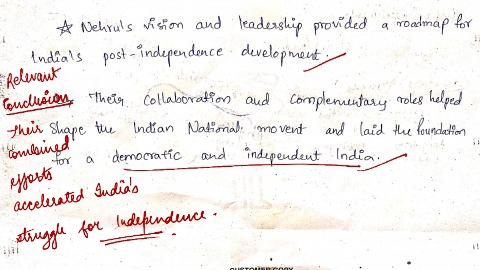 ☆ Nehru's vision and leadership provided a roadmap for
India's post-independence development.
Relevant
Conclusion Their Collaboration and Complementary roles helped
Their Shape the Indian National movent and laid the foundation
combined for a democratic and independent India.
efforts
accelerated India's
struggle for Independence.
CUSTOMER COPY